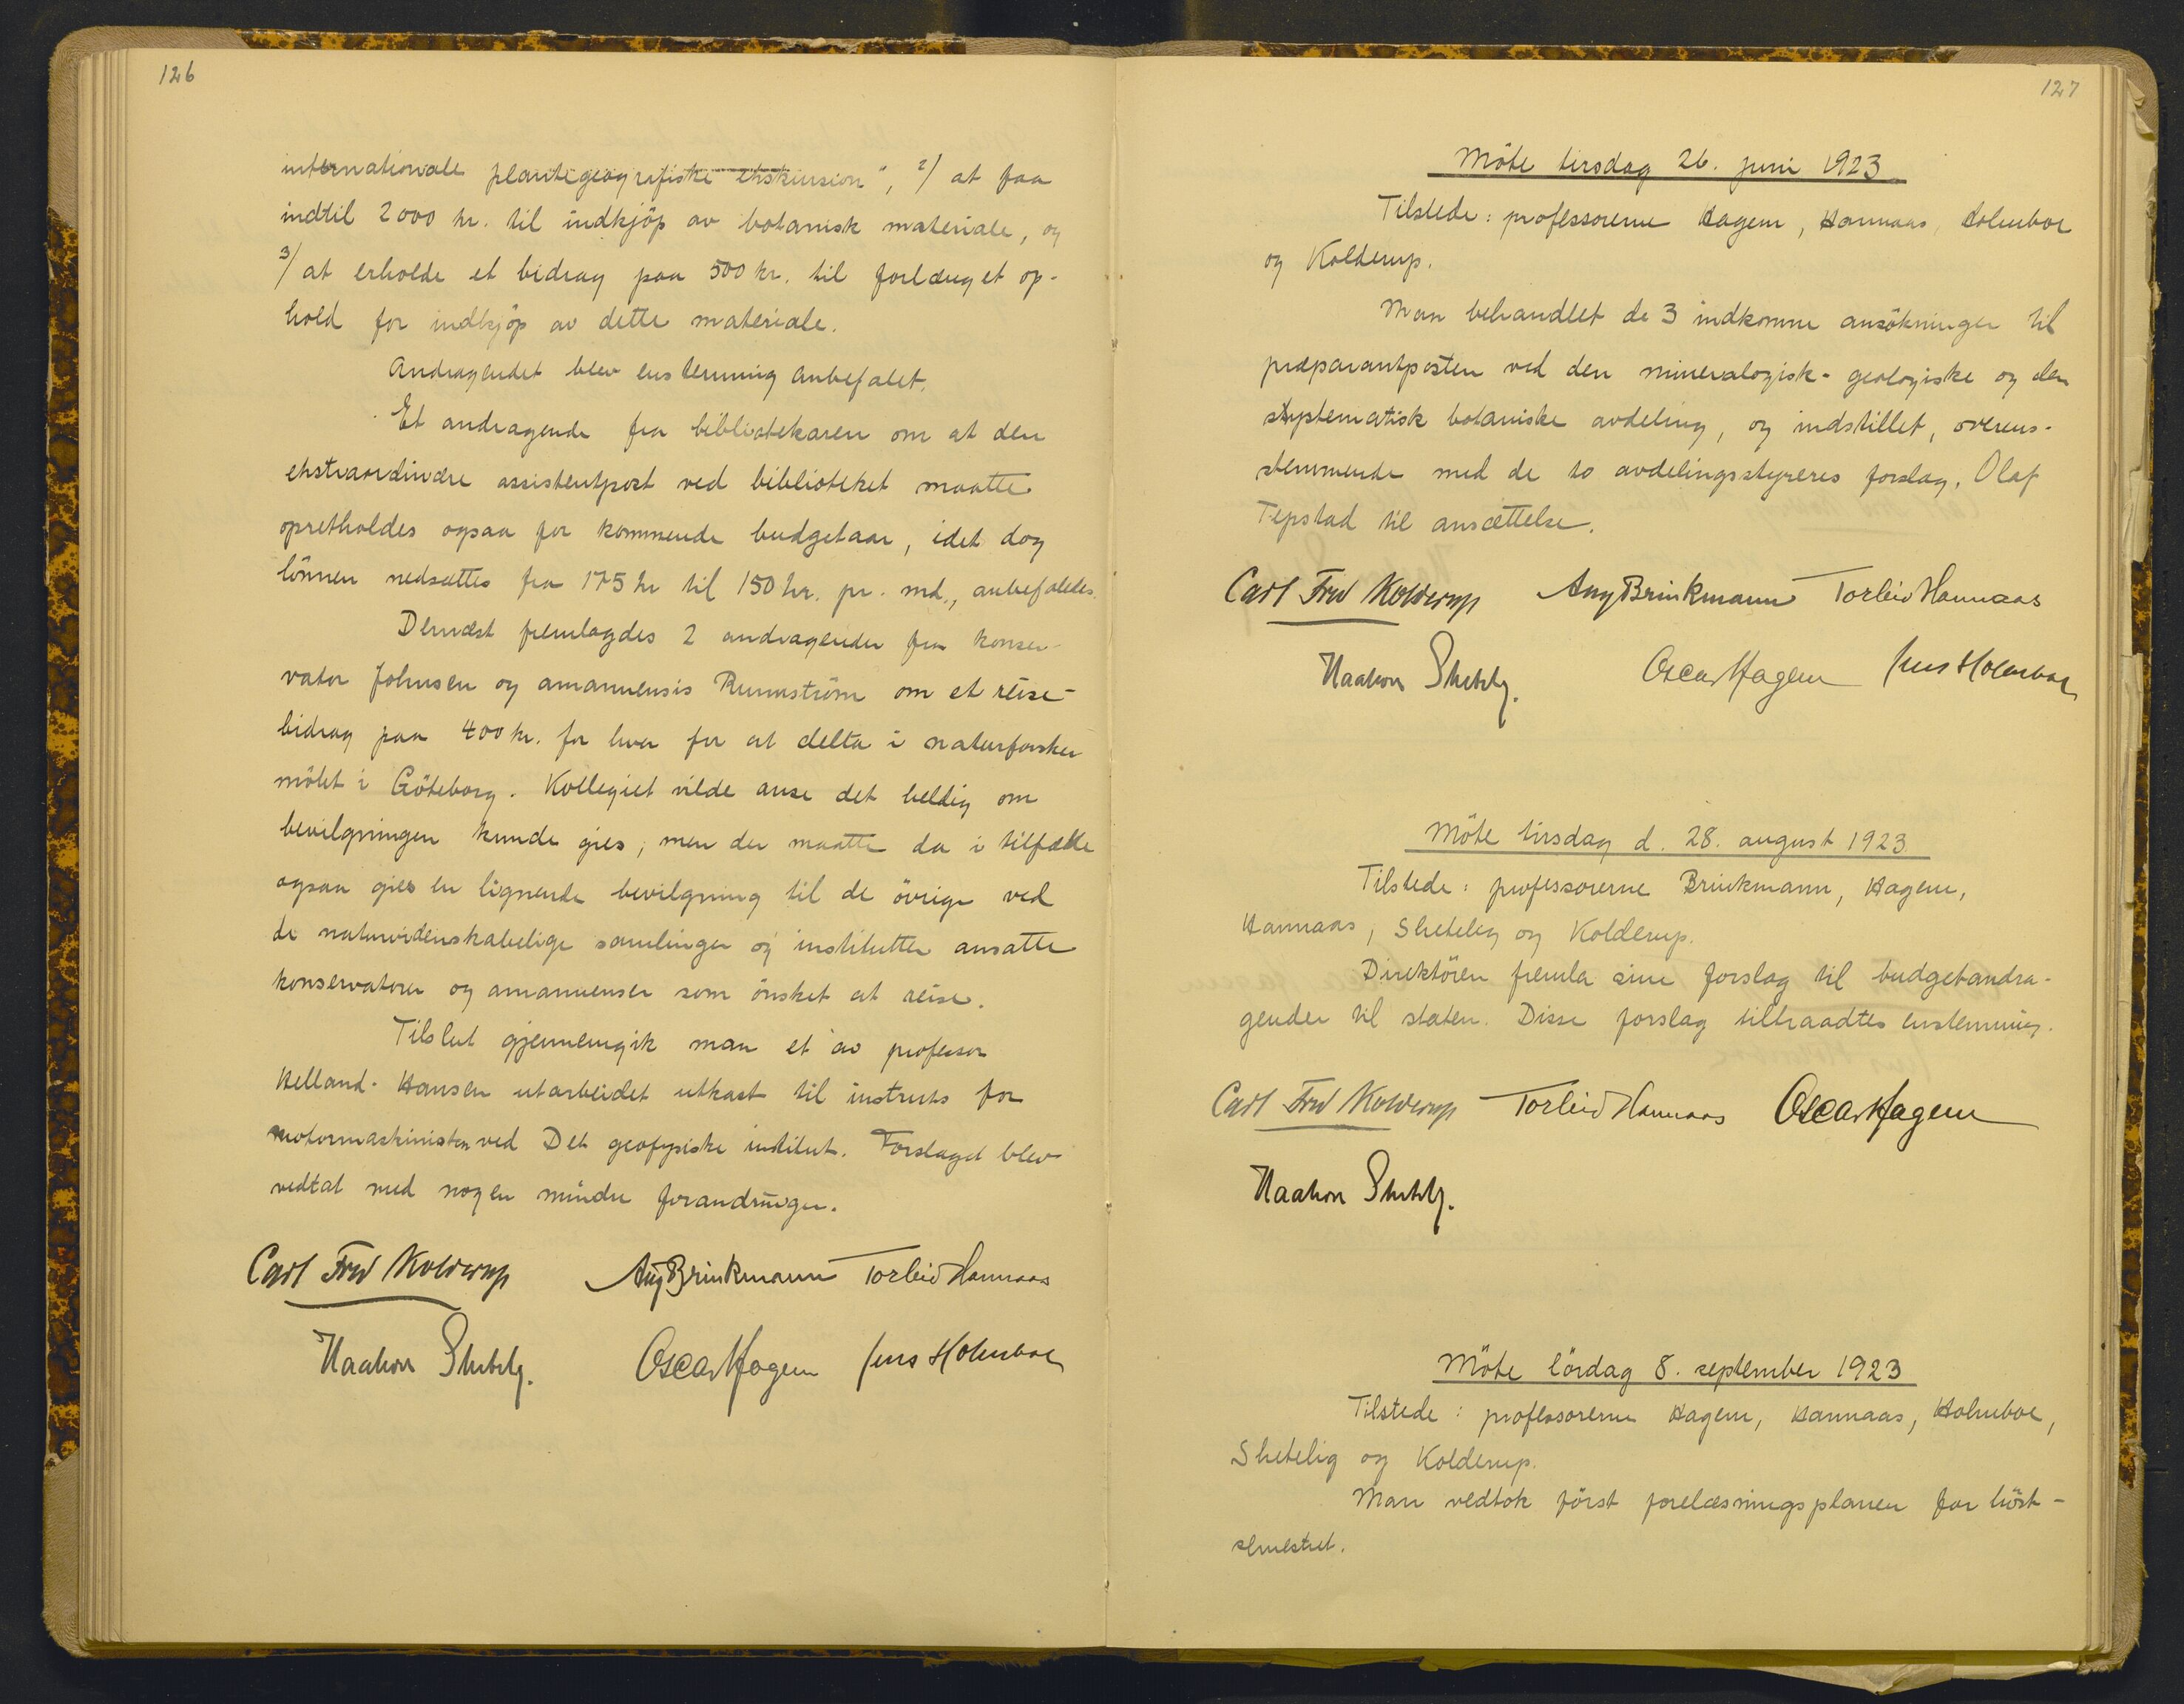 126
internationale plantegeografiske ekskursion", 2/ at faa
indtil 2000 kr. til indkjöp av botanisk materiale, og
3/ at erholde et bidrag paa 500 kr. til forlænget op-
hold for indkjöp av dette materiale.
Andragendet blev enstemmig anbefalet.
Et andragende fra bibliotekaren om at den
ekstraordinære assistentpost ved biblioteket maatte
opretholdes ogsaa for kommende budgetaar, idet dog
lönnen nedsættes fra 175 kr til 150 kr. pr. md., anbefaledes.
Dernæst fremlagdes 2 andragender fra konser-
vator Johnsen og amanuensis Runnström om et reise-
bidrag paa 400 kr. for hver for at delta i naturforsker
mötet i Göteborg. Kollegiet vilde anse det heldig om
bevilgningen kunde gies, men der maatte da i tilfælde
ogsaa gies en lignende bevilgning til de övrige ved
de naturvidenskabelige samlinger og institutter ansatte
konservatorer og amanuenser som önsket at reise.
Tilslut gjennemgik man et av professor
Helland-Hansen utarbeidet utkast til instruks for
motormaskinisten ved Det geofysiske institut. Forslaget blev
vedtat med nogen mindre forandringer.
Carl Fred Kolderup Aug Brinkmann Torleiv Hannaas
Haakon Shetelig. Oscar Hagem Jens Holmboe
127
Möte tirsdag 26. juni 1923
Tilstede: professorerne Hagem, Hannaas, Holmboe
og Kolderup.
Man behandlet de 3 indkomne ansökninger til
præparantposten ved den mineralogisk-geologiske og den
systematisk botaniske avdeling, og indstillet, overens-
stemmende med de to avdelingsstyreres forslag, Olaf
Tepstad til ansættelse.
Carl Fred Kolderup Aug Brinkmann Torleiv Hannaas
Haakon Shetelig. Oscar Hagem Jens Holmboe
Möte tirsdag d. 28. august 1923
Tilstede: professorerne Brinkmann, Hagem,
Hannaas, Shetelig og Kolderup.
Direktören fremla sine forslag til budgetandra-
gender til staten. Disse forslag tiltraadtes enstemmig.
Carl Fred Kolderup Torleiv Hannaas Oscar Hagem
Haakon Shetelig.
Möte lördag 8. september 1923
Tilstede: professorerne Hagem, Hannaas, Holmboe,
Shetelig og Kolderup.
Man vedtok först forelæsningsplanen for höst-
semestret.